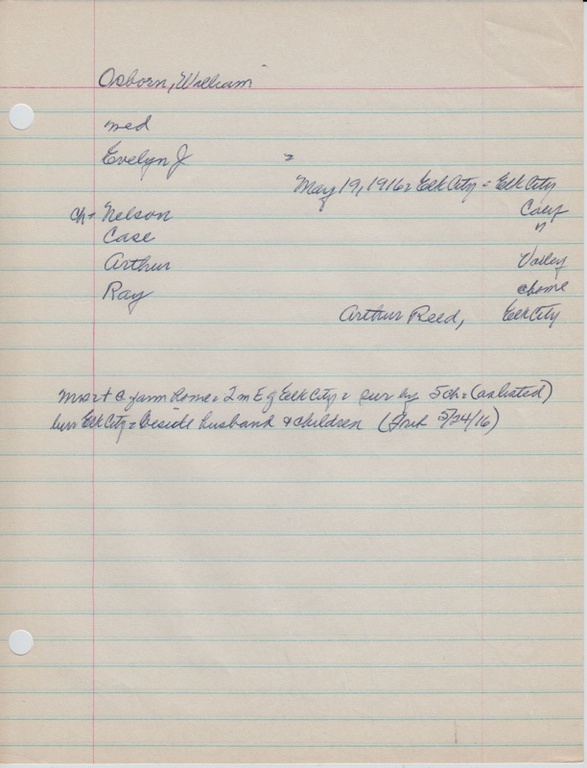 Osborn, William
med
Evelyn J =
May 19, 1916 = Elk City = Elk City
ch = Nelson Caney
Case "
Arthur Valley
Ray
Arthur Reed, Elk City
farm home = 2 m E of Elk City = sur by 5 ch = (as listed)
bur Elk City = beside husband & children ( 5/24/16)